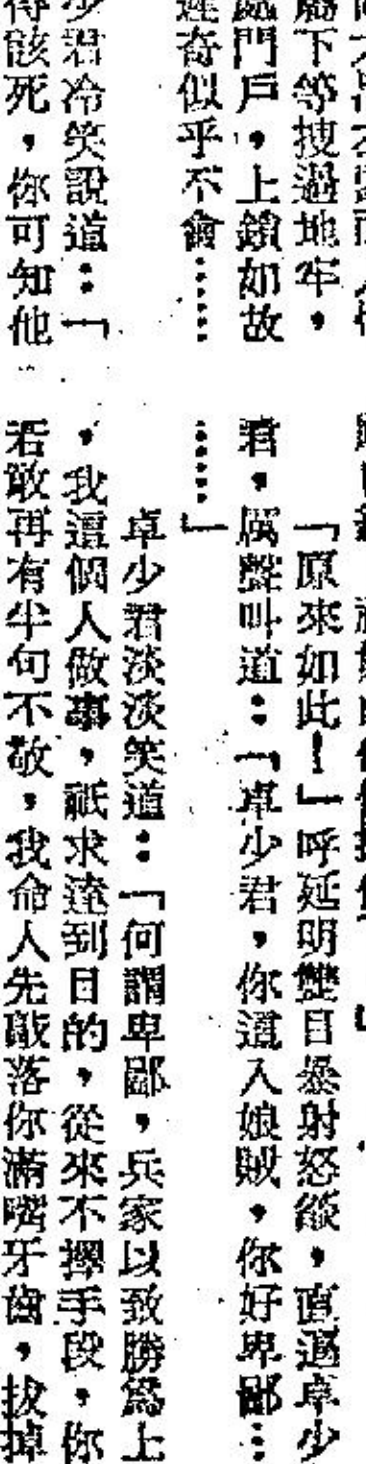 屬下等搜過地牢，
處門戶，上鎖如故
連奇似乎不會……
少君冷笑說道：「
得該死，你可知他
「原來如此！」呼延明雙目暴射怒燄，直逼卓少
君，厲聲叫道：「卓少君，你這入娘賊，你好卑鄙…
……」
卓少君淡淡笑道：「何謂卑鄙，兵家以致勝爲上
，我這個人做事，祇求達到目的，從來不擇手段，你
若敢再有半句不敬，我命人先敲落你滿嘴牙齒，拔掉